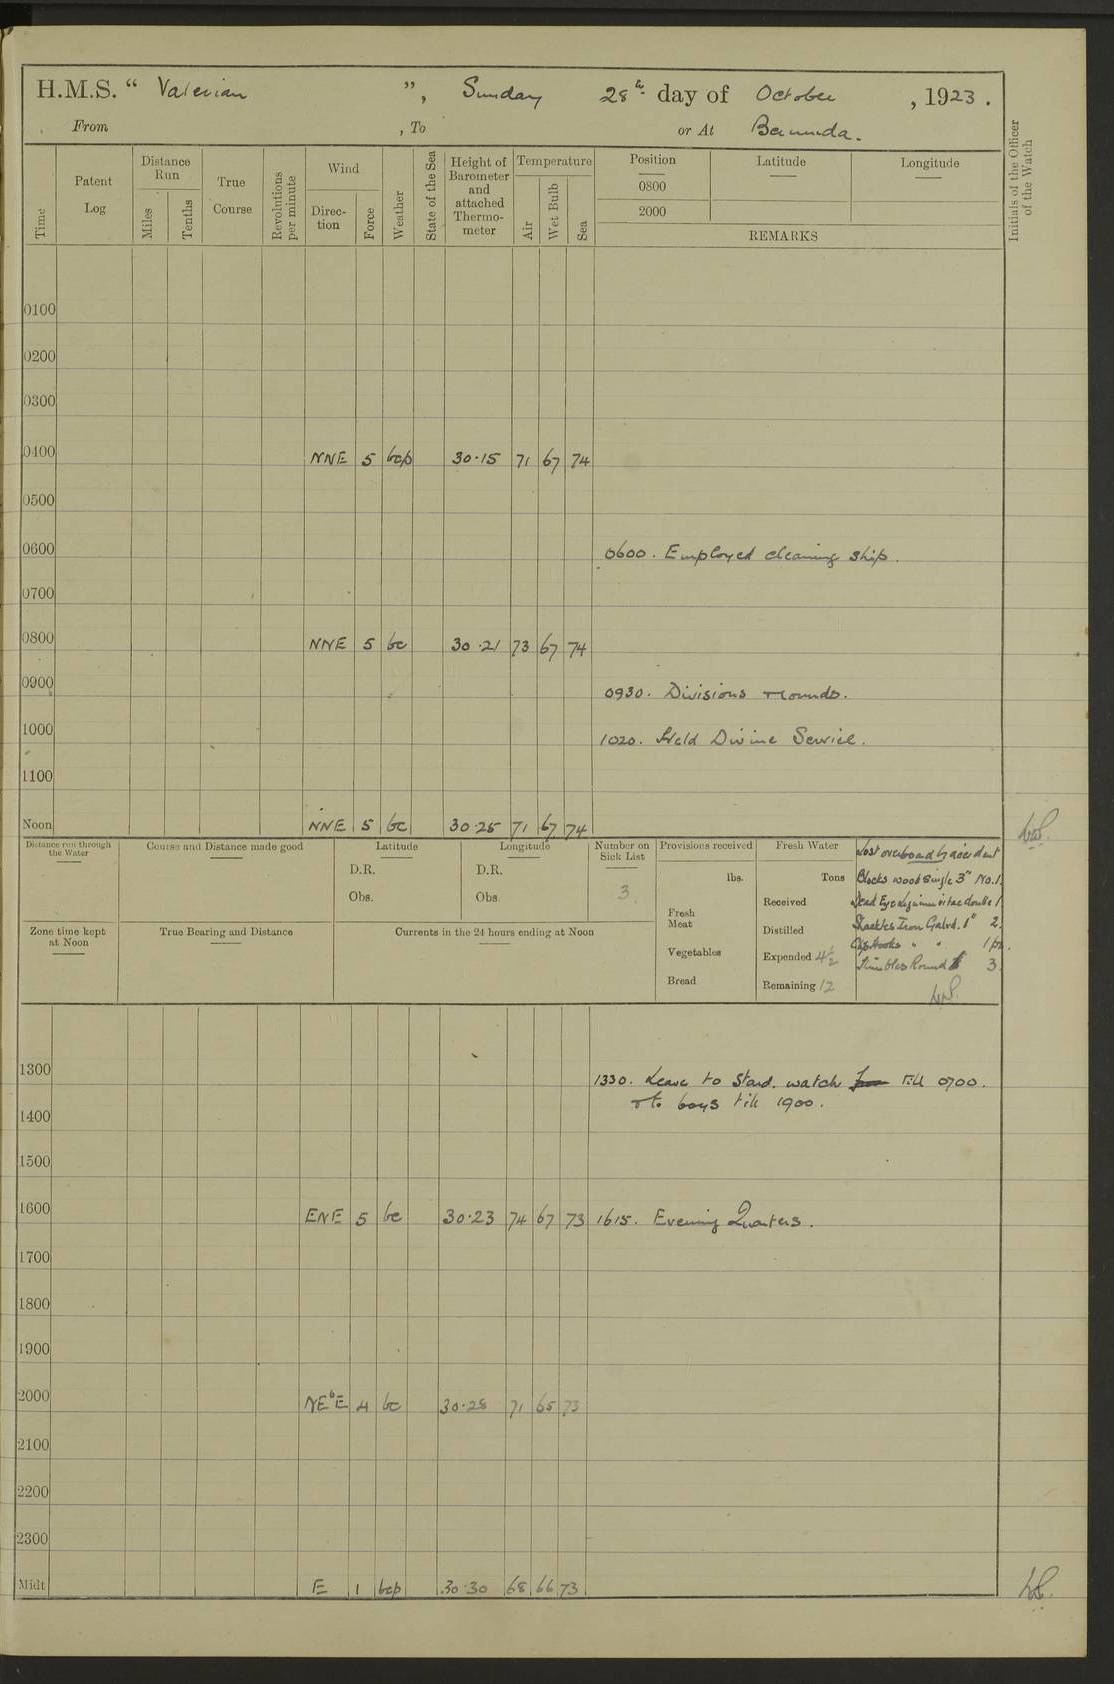 H.M.S. “ Valerian ”, Sunday 28th day of October , 1923.
From , To or At Bermuda.
Time
Patent Log
Distance Run
Miles
Tenths
True Course
Revolutions per minute
Wind
Direc- tion
Force
Weather
State of the Sea
Height of Barometer and attached Thermo- meter
Temperature
Air
Wet Bulb
Sea
Position Latitude Longitude
0800
2000
REMARKS
Initials of the Officer of the Watch
0100
0200
0300
0400 NNE 5 bcp 30·15 71 67 74
0500
0600 0600. Employed cleaning ship.
0700
0800 NNE 5 bc 30·21 73 67 74
0900 0930. Divisions & rounds.
1000 1020. Held Divine Service.
1100
Noon NNE 5 bc 30·25 71 67 74
Distance run through the Water
Course and Distance made good
Latitude
D.R.
Obs.
Longitude
D.R.
Obs.
Number on Sick List
3
Provisions received
lbs.
Fresh Meat
Vegetables
Bread
Fresh Water
Tons
Received
Distilled
Expended 4½
Remaining 12
Lost overboard by accident
Blocks wood single 3" No. 1.
Dead Eye Lignum vitae double 1
Shackles Iron Galvd. 1" 2.
Clip Hooks " " 1 pr.
Thimbles Round 3
Zone time kept at Noon
True Bearing and Distance
Currents in the 24 hours ending at Noon
1300 1330. Leave to Stard. watch till 0700.
& to boys till 1900.
1400
1500
1600 ENE 5 bc 30·23 74 67 73 1615. Evening Quarters.
1700
1800
1900
2000 NEbE 4 bc 30·28 71 65 73
2100
2200
2300
Midt E 1 bcp 30·30 68 66 73